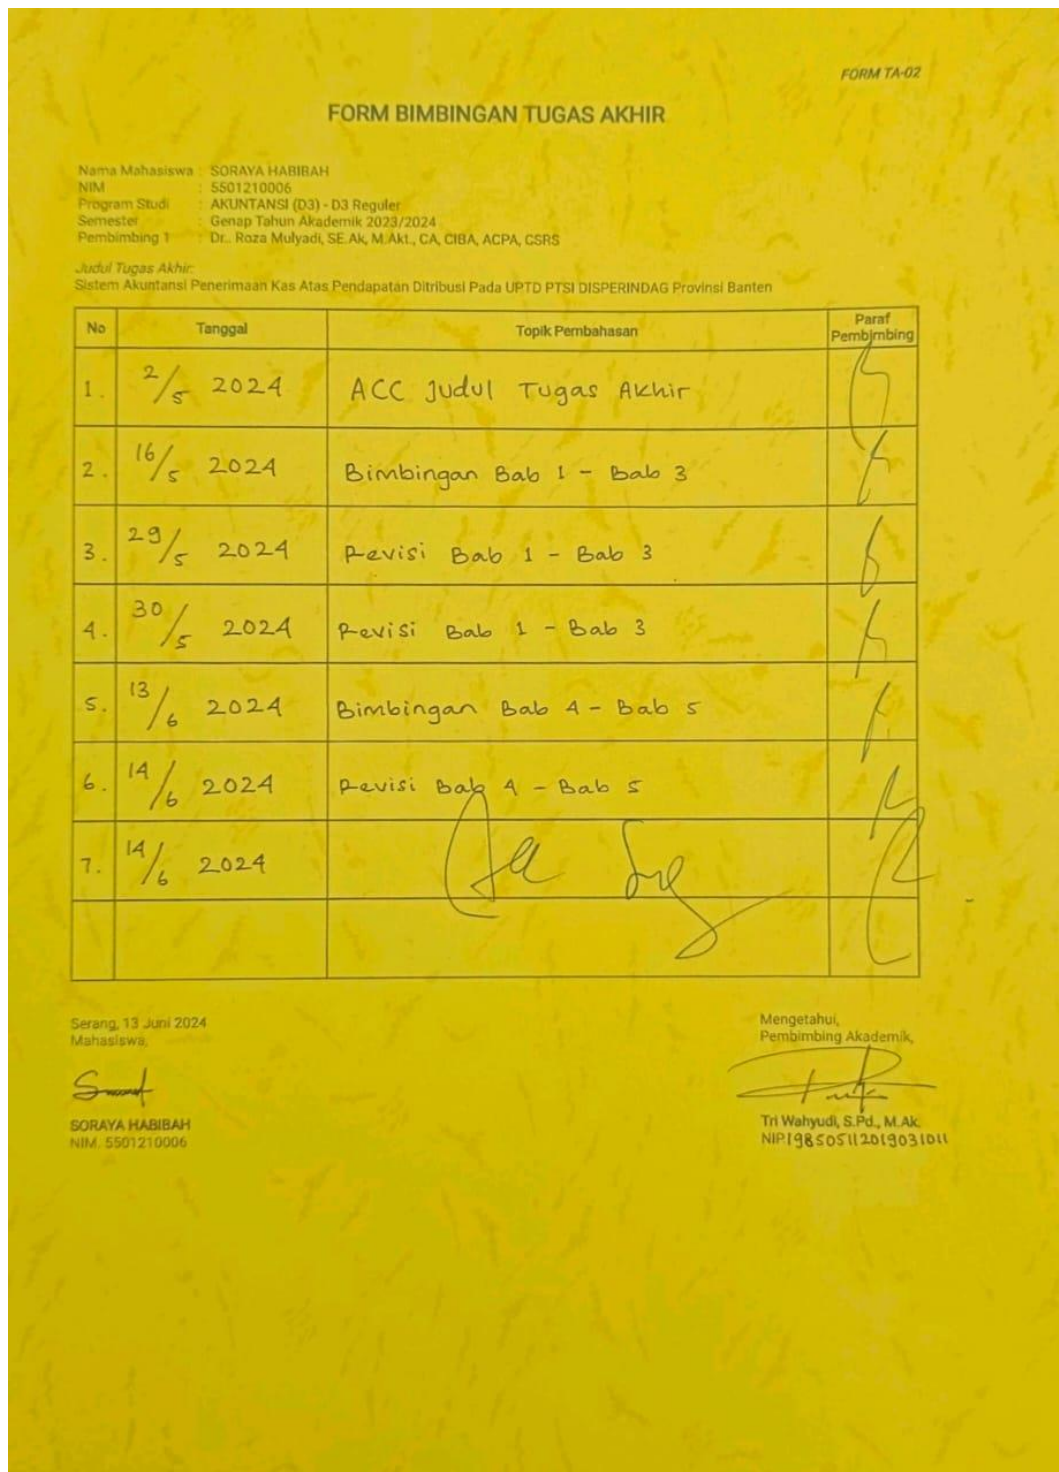 FORM TA-02
FORM BIMBINGAN TUGAS AKHIR
Nama Mahasiswa : SORAYA HABIBAH
NIM : 5501210006
Program Studi : AKUNTANSI (D3) - D3 Reguler
Semester : Genap Tahun Akademik 2023/2024
Pembimbing 1 : Dr.. Roza Mulyadi, SE.Ak, M.Akt., CA, CIBA, ACPA, CSRS
Judul Tugas Akhir:
Sistem Akuntansi Penerimaan Kas Atas Pendapatan Ditribusi Pada UPTD PTSI DISPERINDAG Provinsi Banten
No Tanggal Topik Pembahasan Paraf Pembimbing
1. 2/5 2024 ACC Judul Tugas Akhir
2. 16/5 2024 Bimbingan Bab 1 - Bab 3
3. 29/5 2024 Revisi Bab 1 - Bab 3
4. 30/5 2024 Revisi Bab 1 - Bab 3
5. 13/6 2024 Bimbingan Bab 4 - Bab 5
6. 14/6 2024 Revisi Bab 4 - Bab 5
7. 14/6 2024
Serang, 13 Juni 2024
Mahasiswa,
SORAYA HABIBAH
NIM. 5501210006
Mengetahui,
Pembimbing Akademik,
Tri Wahyudi, S.Pd., M.Ak.
NIP198505112019031011